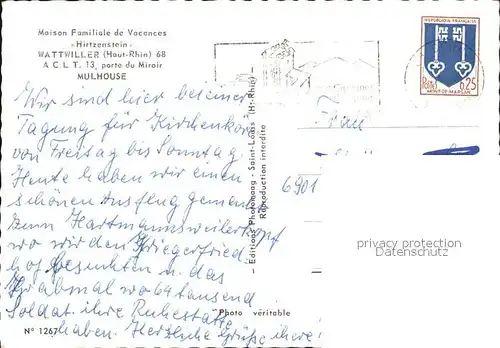 Maison Familiale de Vacances
«Hirtzenstein»
WATTWILLER (Haut-Rhin) 68
A C L T. 13, porte du Miroir
MULHOUSE
Wir sind hier bei einer
Tagung für Kirchenkor
von Freitag bis Sonntag
Heute haben wir einen
schönen Ausflug gemacht
zum Hartmannsweilerkopf
wo wir den Kriegerfried
hof besuchten u. das
Grabmal wo 64 tausend
Soldat. ihre Ruhestatte
haben. Herzliche Grüße ihere!
Nº 1267
Photo véritable
Editions Photomoog - Saint-Louis (Ht-Rhin)
Reproduction interdite
REPUBLIQUE FRANÇAISE
Postes
0,25
MONT-DE-MARSAN
Frau
6901
privacy protection
Datenschutz